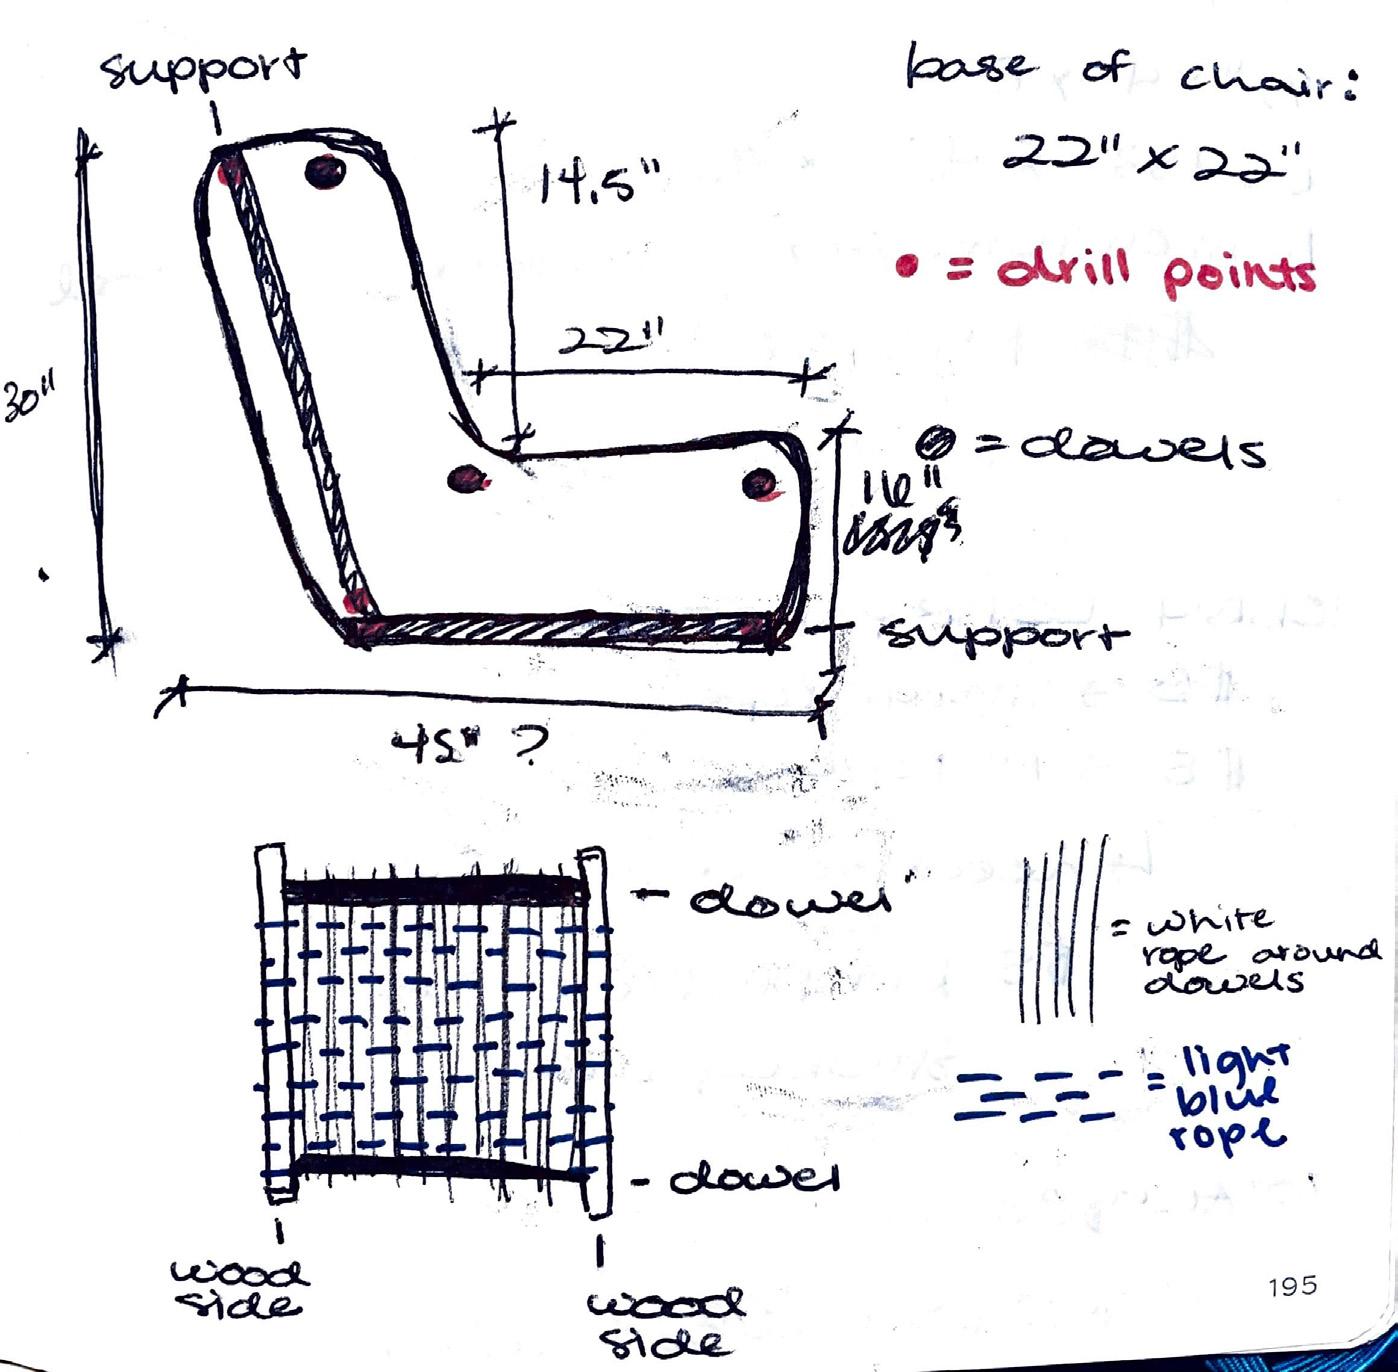 support
base of chair:
22" x 22"
14.5"
• = drill points
22"
30"
= dowels
16"
support
45" ?
- dowel
= white
rope around
dowels
= light
blue
rope
- dowel
wood
side
wood
side
195